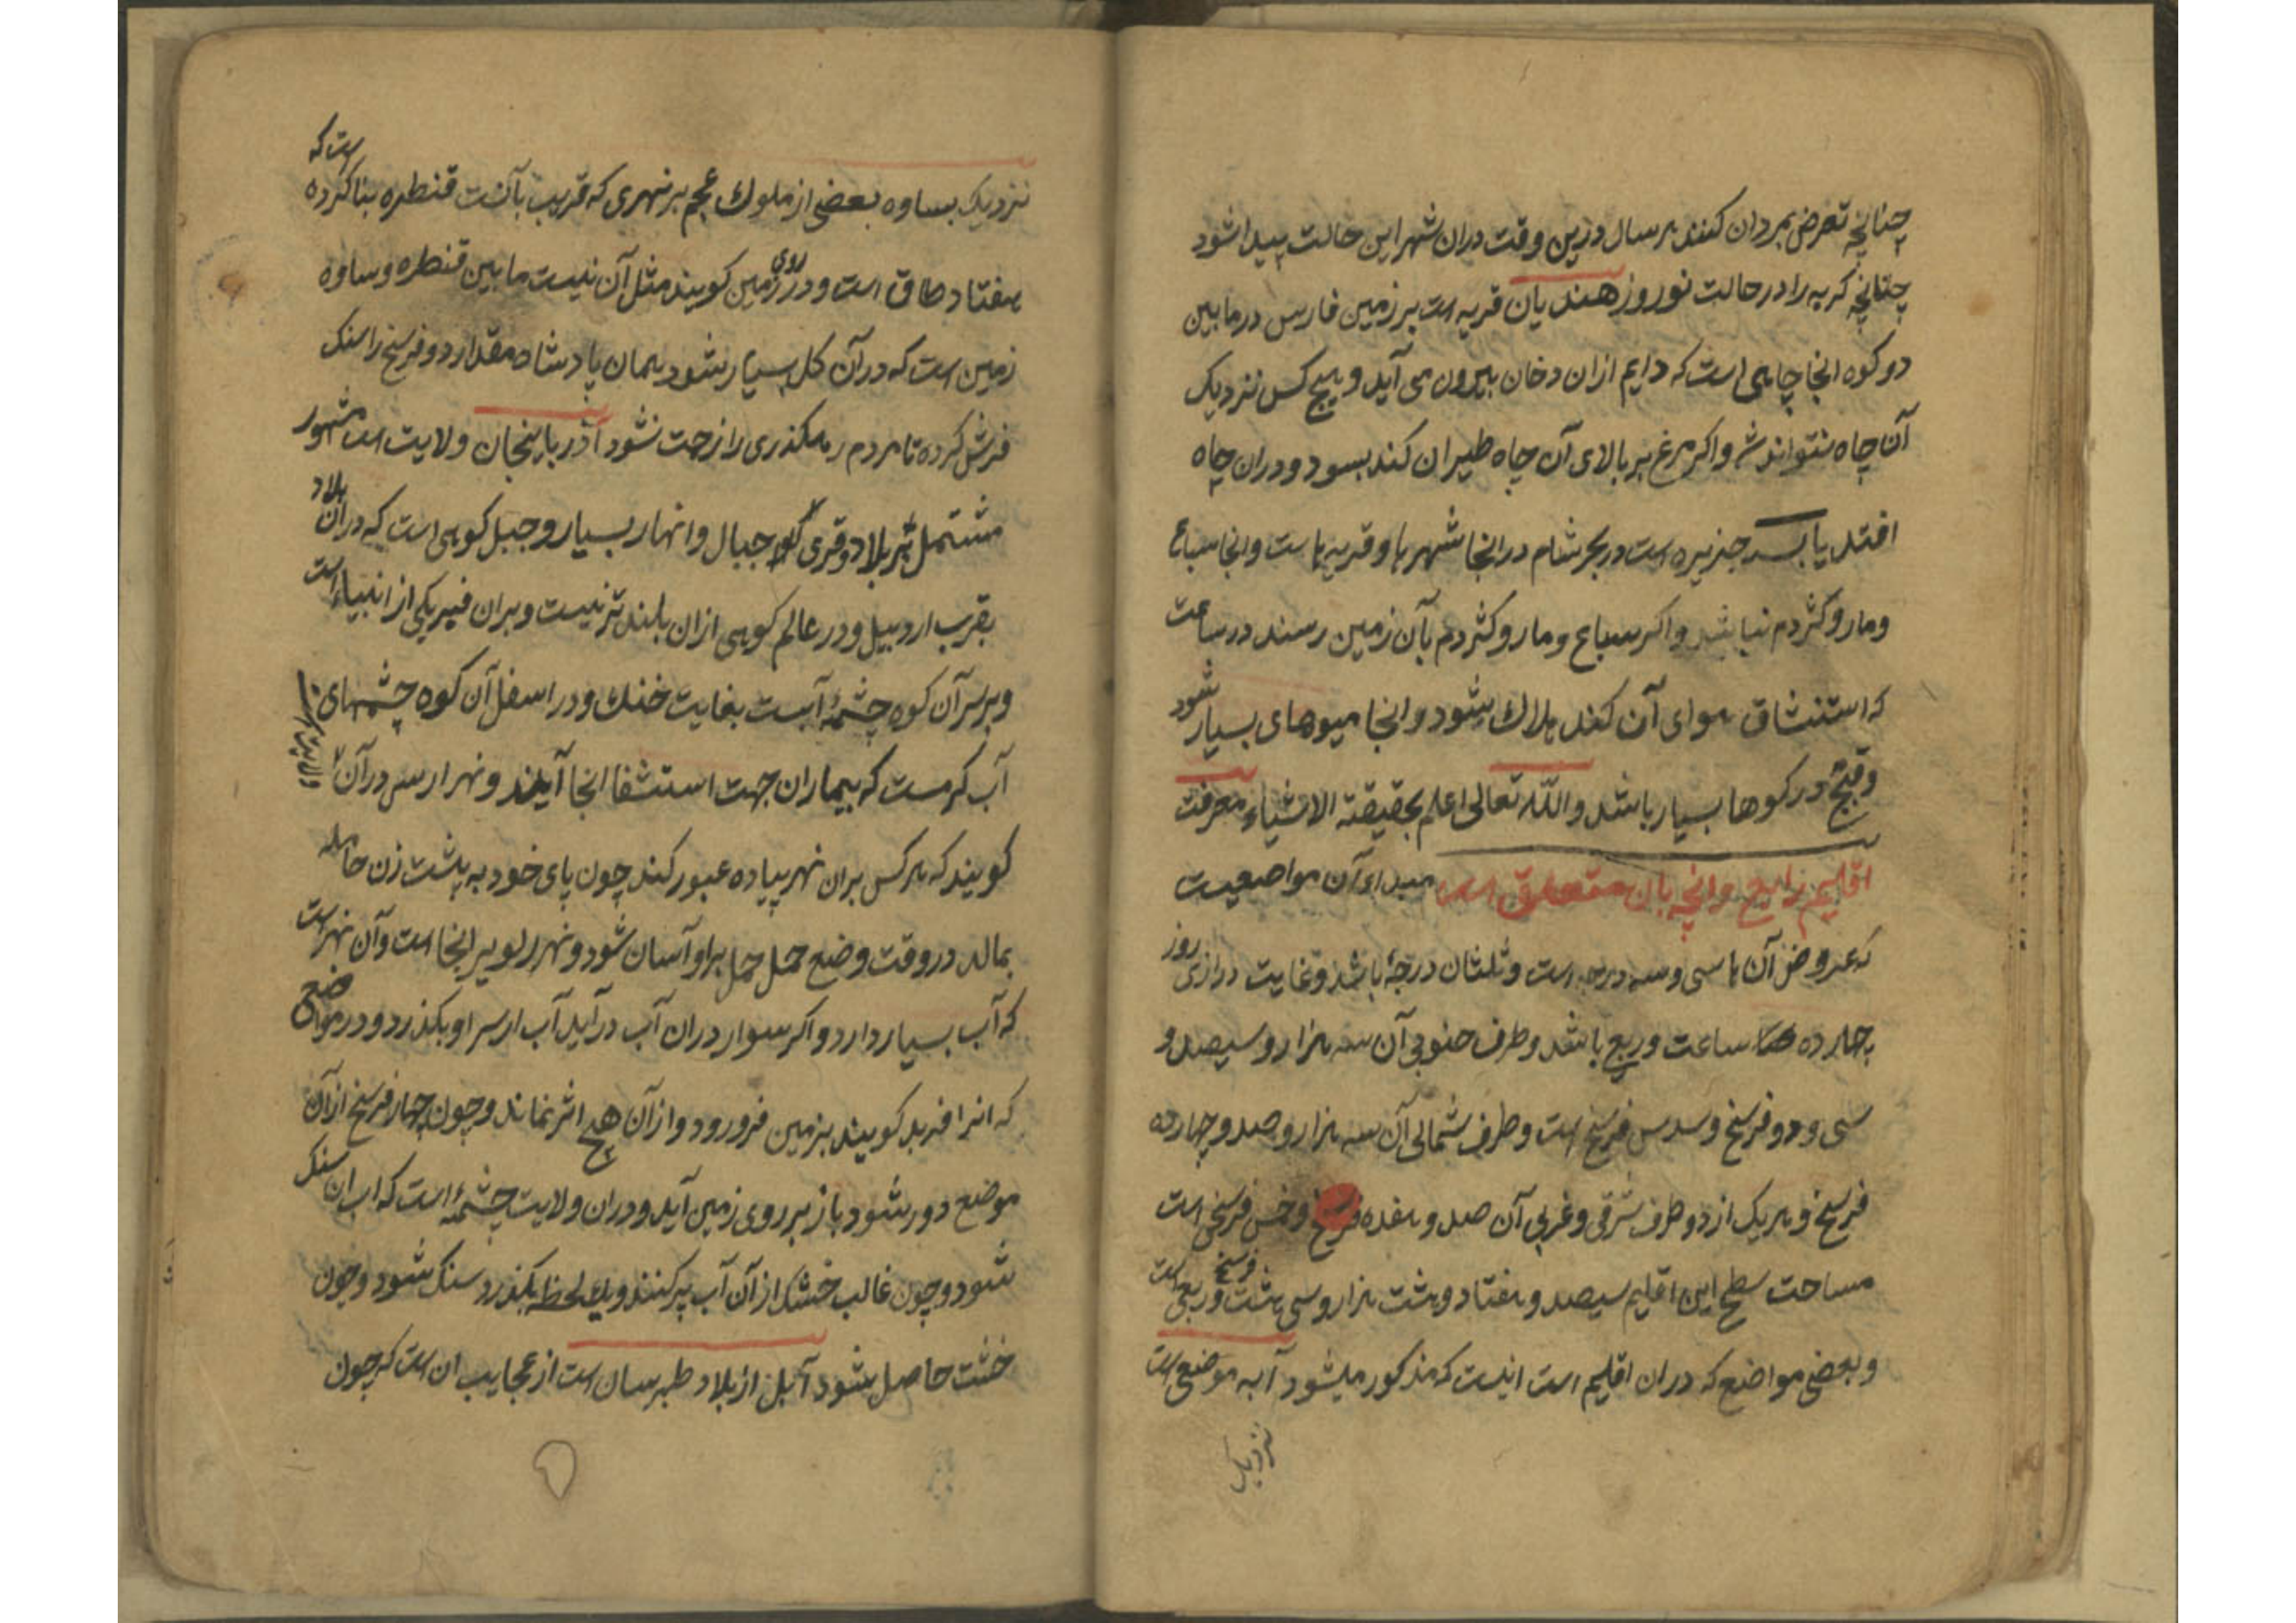 چنانچه تعرض بمردان کنند هر سال درین وقت دران شهر این حالت پیدا شود
چنانچه کربه را در حالت نوروز هندیان قریه است بر زمین فارس در مابین
دو کوه انجا چاهی است که دایم ازان دخان بیرون می آید و هیچ کس نزدیک
آن چاه نتواند شد و اکر مرغ بر بالای آن چاه طیران کند بسوزد و دران چاه
افتد یابسه جزیره است در بحر شام در انجا شهرها و قریه ها است و انجا سباع
و مار و کژدم نباشد و اکر سباع و مار و کژدم بآن زمین رسند در ساعت
که استنشاق هوای آن کنند هلاک شود و انجا میوهای بسیار شود
و قبج در کوها بسیار باشد و الله تعالی اعلم بحقیقة الاشیاء معرفت
اقلیم رابع وانچه بان متعلق است مبداء آن مواضعیست
که عروض آن ها سی و سه درجه است و ثلثان درجۀ باشد و غایت درازی روز
چهارده ساعت و ربع باشد و طرف جنوبی آن سه هزار و سیصد و
سی و دو فرسخ و سدس فرسخ است و طرف شمالی آن سه هزار و صد و چهارده
فرسخ و هر یک از دو طرف شرقی و غربی آن صد و هفده فرسخ و خمس فرسخی است
مساحت سطح این اقلیم سیصد و هفتاد و هشت هزار و سی هشت فرسخ و ربعی است
و بعضی مواضع که دران اقلیم است اینست که مذکور میشود آبه موضعی است
نزدیک
نزدیک بساوه بعضی از ملوک عجم بر نهری که قریب بآنست قنطره بنا کرده است که
هفتاد طاق است و در روی زمین کویند مثل آن نیست مابین قنطره و ساوه
زمین است که در آن کل بسیار شود همان پادشاه مقدار دو فرسخ را سنک
فرش کرده تا مردم رهکذری را زحت نشود آذربایجان ولایت است مشهور
مشتمل بر بلاد و قری و جبال و انهار بسیار و جبل کوهی است که دران بلاد
بقرب اردبیل و در عالم کوهی ازان بلند تر نیست و بران قبر یکی از انبیاء است
و بر سر آن کوه چشمۀ آبست بغایت خنک و در اسفل آن کوه چشمهای
آب کرمست که بیماران جهت استشفا انجا آیند و نهر ارس در آن
کویند که هر کس بران نهر پیاده عبور کند چون پای خود به پشت زن حامله
بمالد در وقت وضع حمل حمل بر او آسان شود و نهر انجا است و آن نهر است
که آب بسیار دارد و اکر سوار دران آب در آید آب از سر او بکذرد و در موضعی
که انرا کویند بزمین فرو رود و از آن هیچ اثر نماند و چون چهار فرسخ از آن
موضع دور شود باز بر روی زمین آید و دران ولایت چشمۀ است که اب ان سنک
شود و چون غالب خشت از آن آب پر کنند و یک لحظه بکذرد سنک شود و چون
خشت حاصل شود آبل از بلاد طبرسان است از عجایب ان است که چون